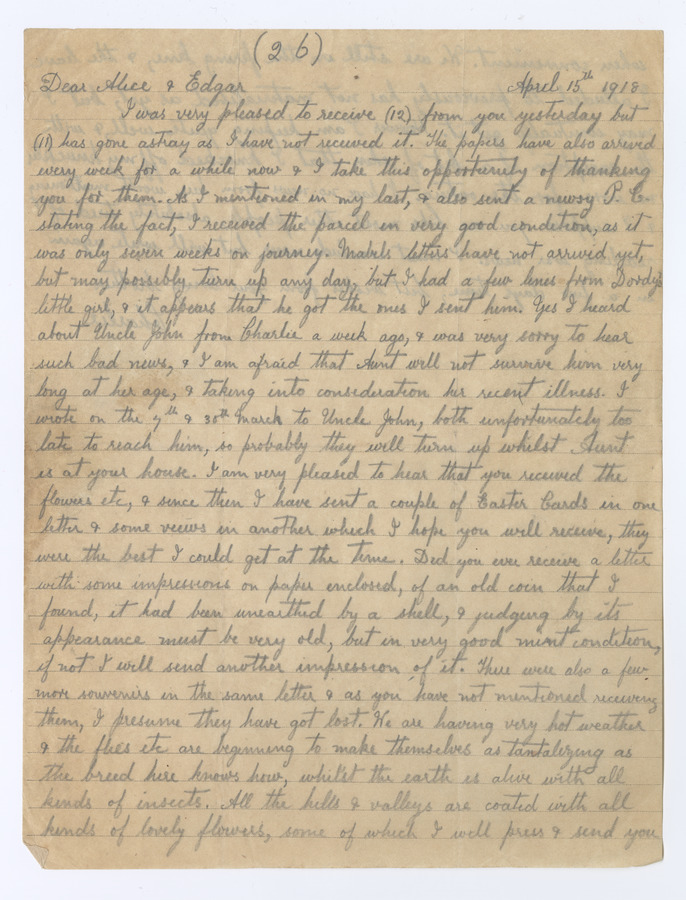 (26)
Dear Alice & Edgar April 15th 1918
I was very pleased to receive (12) from you yesterday but
(11) has gone astray as I have not received it. The papers have also arrived
every week for a while now & I take this opportunity of thanking
you for them. As I mentioned in my last, & also sent a newsy P.C.
stating the fact, I received the parcel in very good condition, as it
was only seven weeks on journey. Mabels letters have not arrived yet,
but may possibly turn up any day, but I had a few lines from Dordy's
little girl, & it appears that he got the ones I sent him. Yes I heard
about Uncle John from Charlie a week ago, & was very sorry to hear
such bad news, & I am afraid that Aunt will not survive him very
long at her age, & taking into consideration her recent illness. I
wrote on the 7th & 30th March to Uncle John, both unfortunately too
late to reach him, so probably they will turn up whilst Aunt
is at your house. I am very pleased to hear that you received the
flowers etc, & since then I have sent a couple of Easter Cards in one
letter & some views in another which I hope you will receive, they
were the best I could get at the time. Did you ever receive a letter
with some impressions on paper enclosed, of an old coin that I
found, it had been unearthed by a shell, & judging by its
appearance must be very old, but in very good mint condition,
if not I will send another impression of it. There were also a few
more souvenirs in the same letter & as you have not mentioned receiving
them, I presume they have got lost. We are having very hot weather
& the flies etc are beginning to make themselves as tantalizing as
the breed here knows how, whilst the earth is alive with all
kinds of insects. All the hills & valleys are coated with all
kinds of lovely flowers, some of which I will press & send you